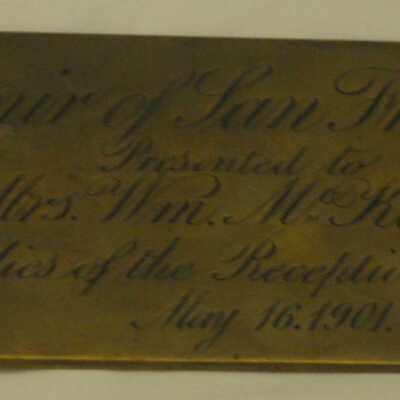 nir of San Fr
Presented to
Mrs. Wm. McK
dies of the Recepti
May 16. 1901.